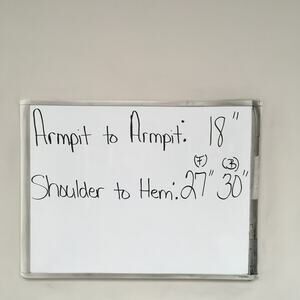 Armpit to Armpit: 18"
(F) (B)
Shoulder to Hem: 27" 30"